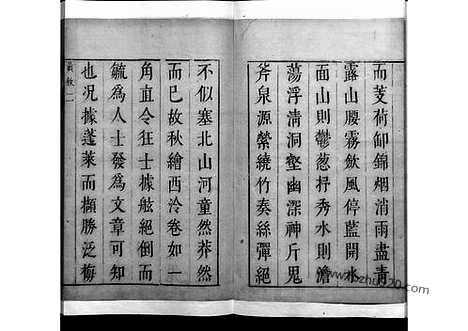 而芰荷仰錦烟消雨盡青
露山腰霧斂風停藍開水
面山則鬱葱抒秀水則澹
蕩浮清洞壑幽深神斤鬼
斧泉源縈繞竹奏絲彈絕
不似塞北山河童然莽然
而已故秋繪西泠卷如一
角直令狂士據舷絕倒而
毓為人士發為文章可知
也况據蓬萊而擷勝泛梅